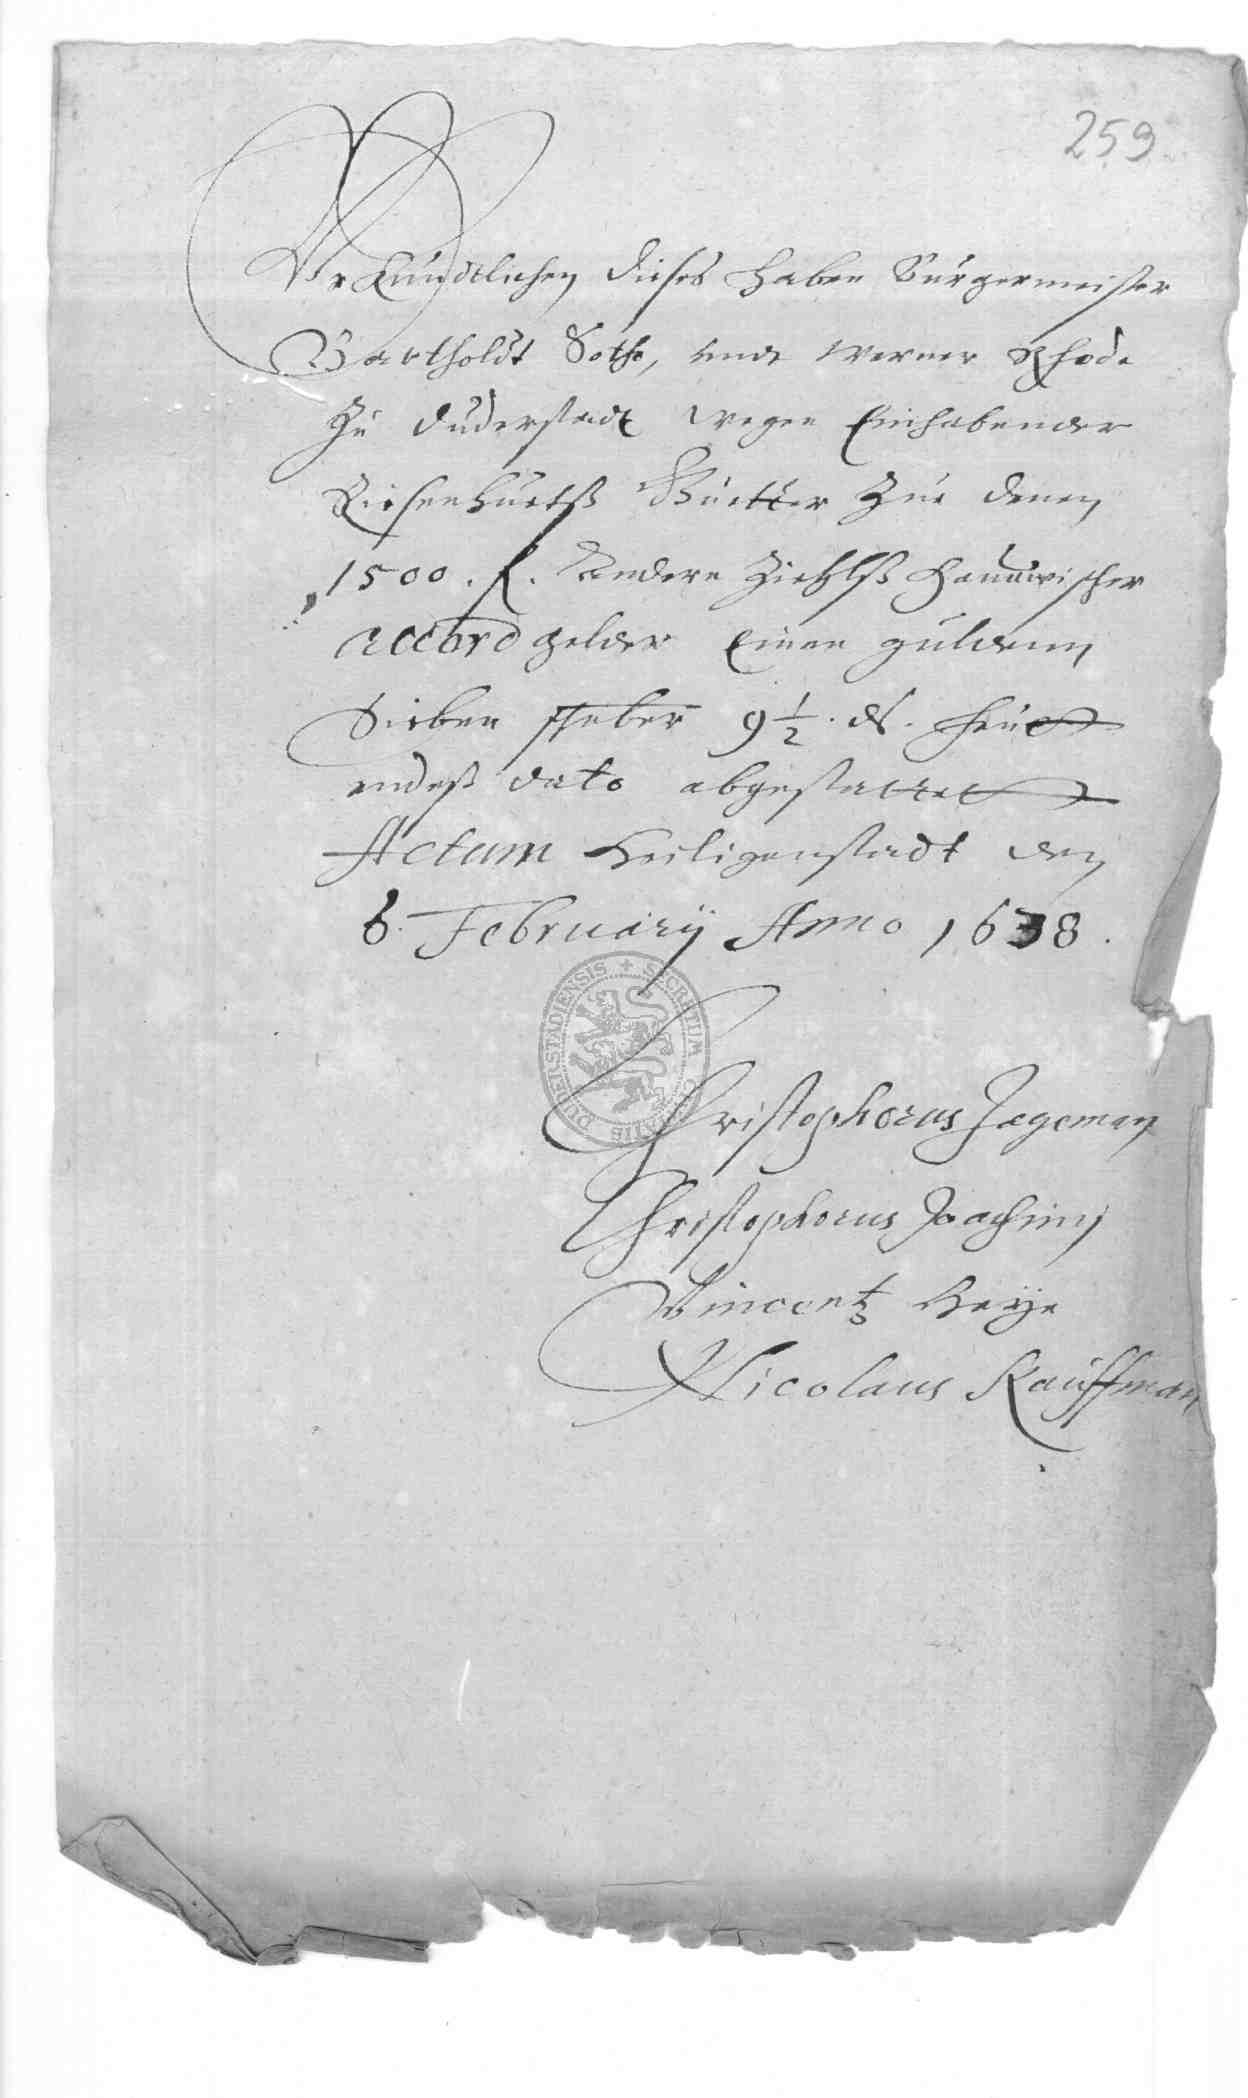 259
Vrkundtlichen dieses haben Bürgermeister
Bartholdt Bothe, undt Werner Rhode
Zu Duderstadt wegen Einhabender
Guetter Zue denen
1500. f. andern Ziehlß Hanawischer
accord gelder Einen guldenn
Sieben 9 1/2 . heut
endeß dato abgestattet
Actum Heiligenstadt den
6. February Anno 1638.
SECRETUM CIVITATIS DUDERSTADIENSIS
Christophorus Jagemann
Christophorus Joachimj
Vincentz Heÿe
Nicolaus Kauffman